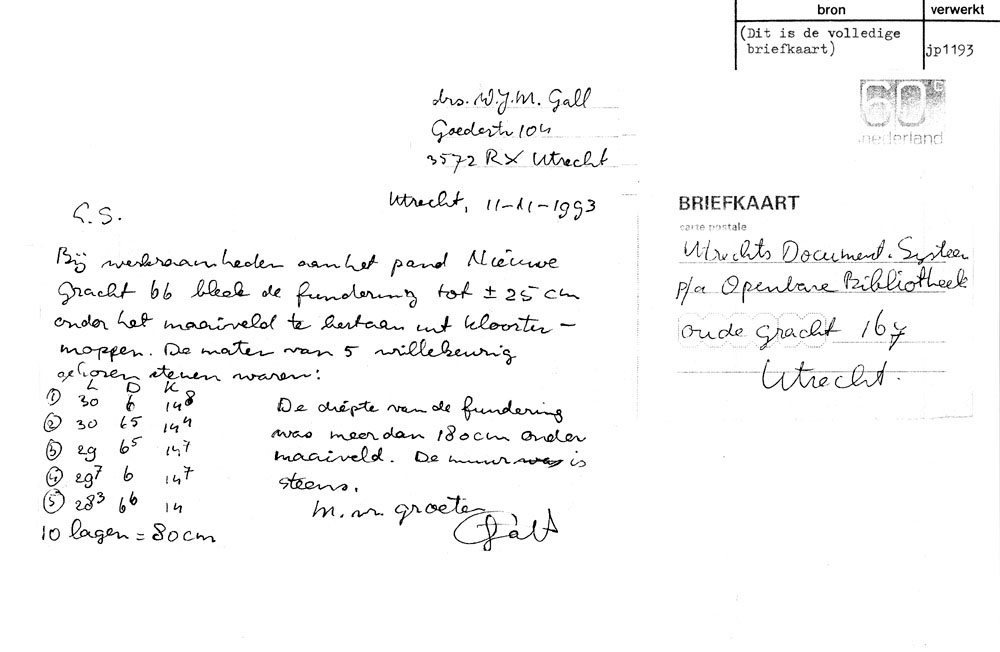 bron
verwerkt
(Dit is de volledige
briefkaart)
jp1193
drs. W.J.M. Gall
Goedestr 104
3572 RX Utrecht
Utrecht, 11-11-1993
60 c
nederland
L.S.
Bij werkzaamheden aan het pand Nieuwe
gracht 66 bleek de fundering tot ± 25 cm
onder het maaiveld te bestaan uit klooster-
moppen. De maten van 5 willekeurig
gekozen stenen waren:
L D K
① 30 6 14⁸
② 30 65 14⁴
③ 29 6⁵ 14⁷
④ 29⁷ 6 14⁷
⑤ 28³ 6⁶ 14
10 lagen = 80 cm
De diepte van de fundering
was meer dan 180 cm onder
maaiveld. De muur was is
steens.
m. vr. groeten
Gall
BRIEFKAART
carte postale
Utrechts Document. Systeem
p/a Openbare Bibliotheek
oude gracht 167
Utrecht.